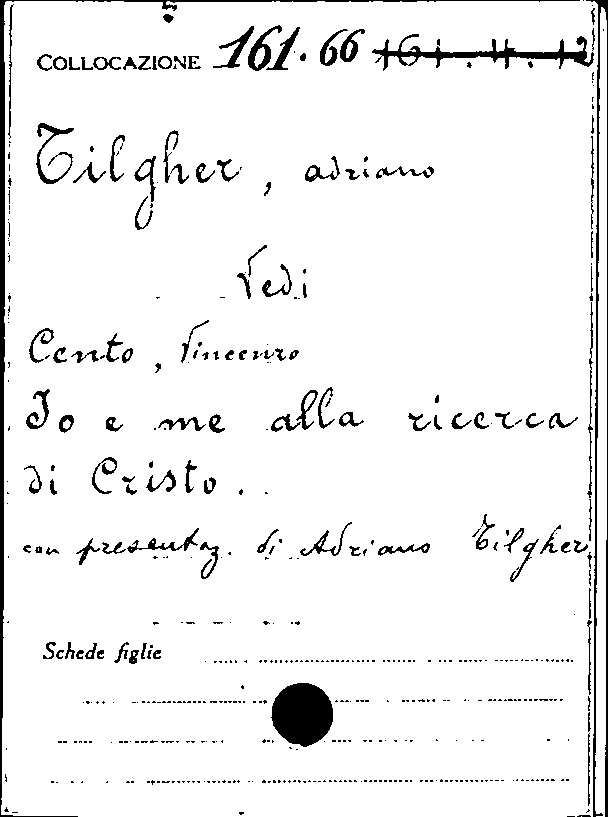 COLLOCAZIONE 161.66 161.4.12
Tilgher, Adriano
Vedi
Cento, Vincenzo
Io e me alla ricerca
di Cristo.
con presentaz. di Adriano Tilgher
Schede figlie